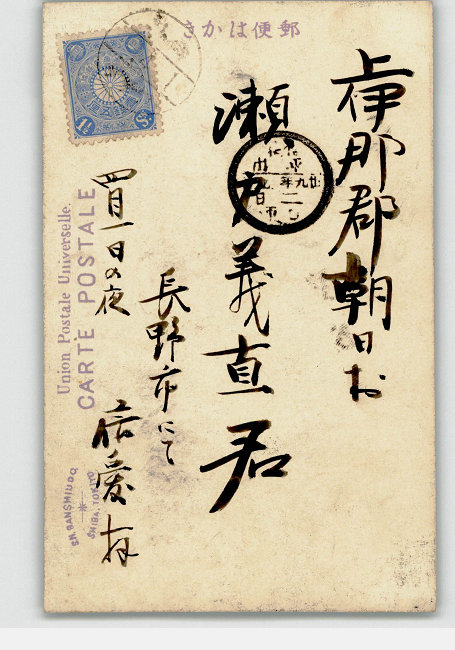 郵便はかき
上伊那郡朝日村
瀬戸義直君
長野市にて
四月一日の夜
信愛拝
Union Postale Universelle.
CARTE POSTALE
SN. BANSHIUDO
SHIBA, TOKYO